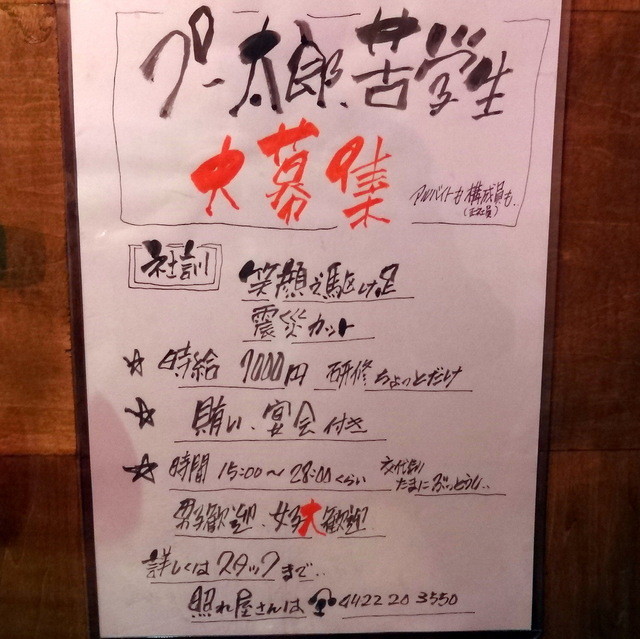 プー太郎、苦学生
大募集
アルバイトも構成員も..
(正社員)
社訓
笑顔で駆け足
震災カット
☆ 時給 1000円 研修ちょっとだけ
☆ 賄い、宴会付き
☆ 時間 15:00〜28:00くらい
交代制
たまにぶっとうし..
男子歓迎、女子大歓迎!
詳しくはスタッフまで..
照れ屋さんは ☎ 4422203550